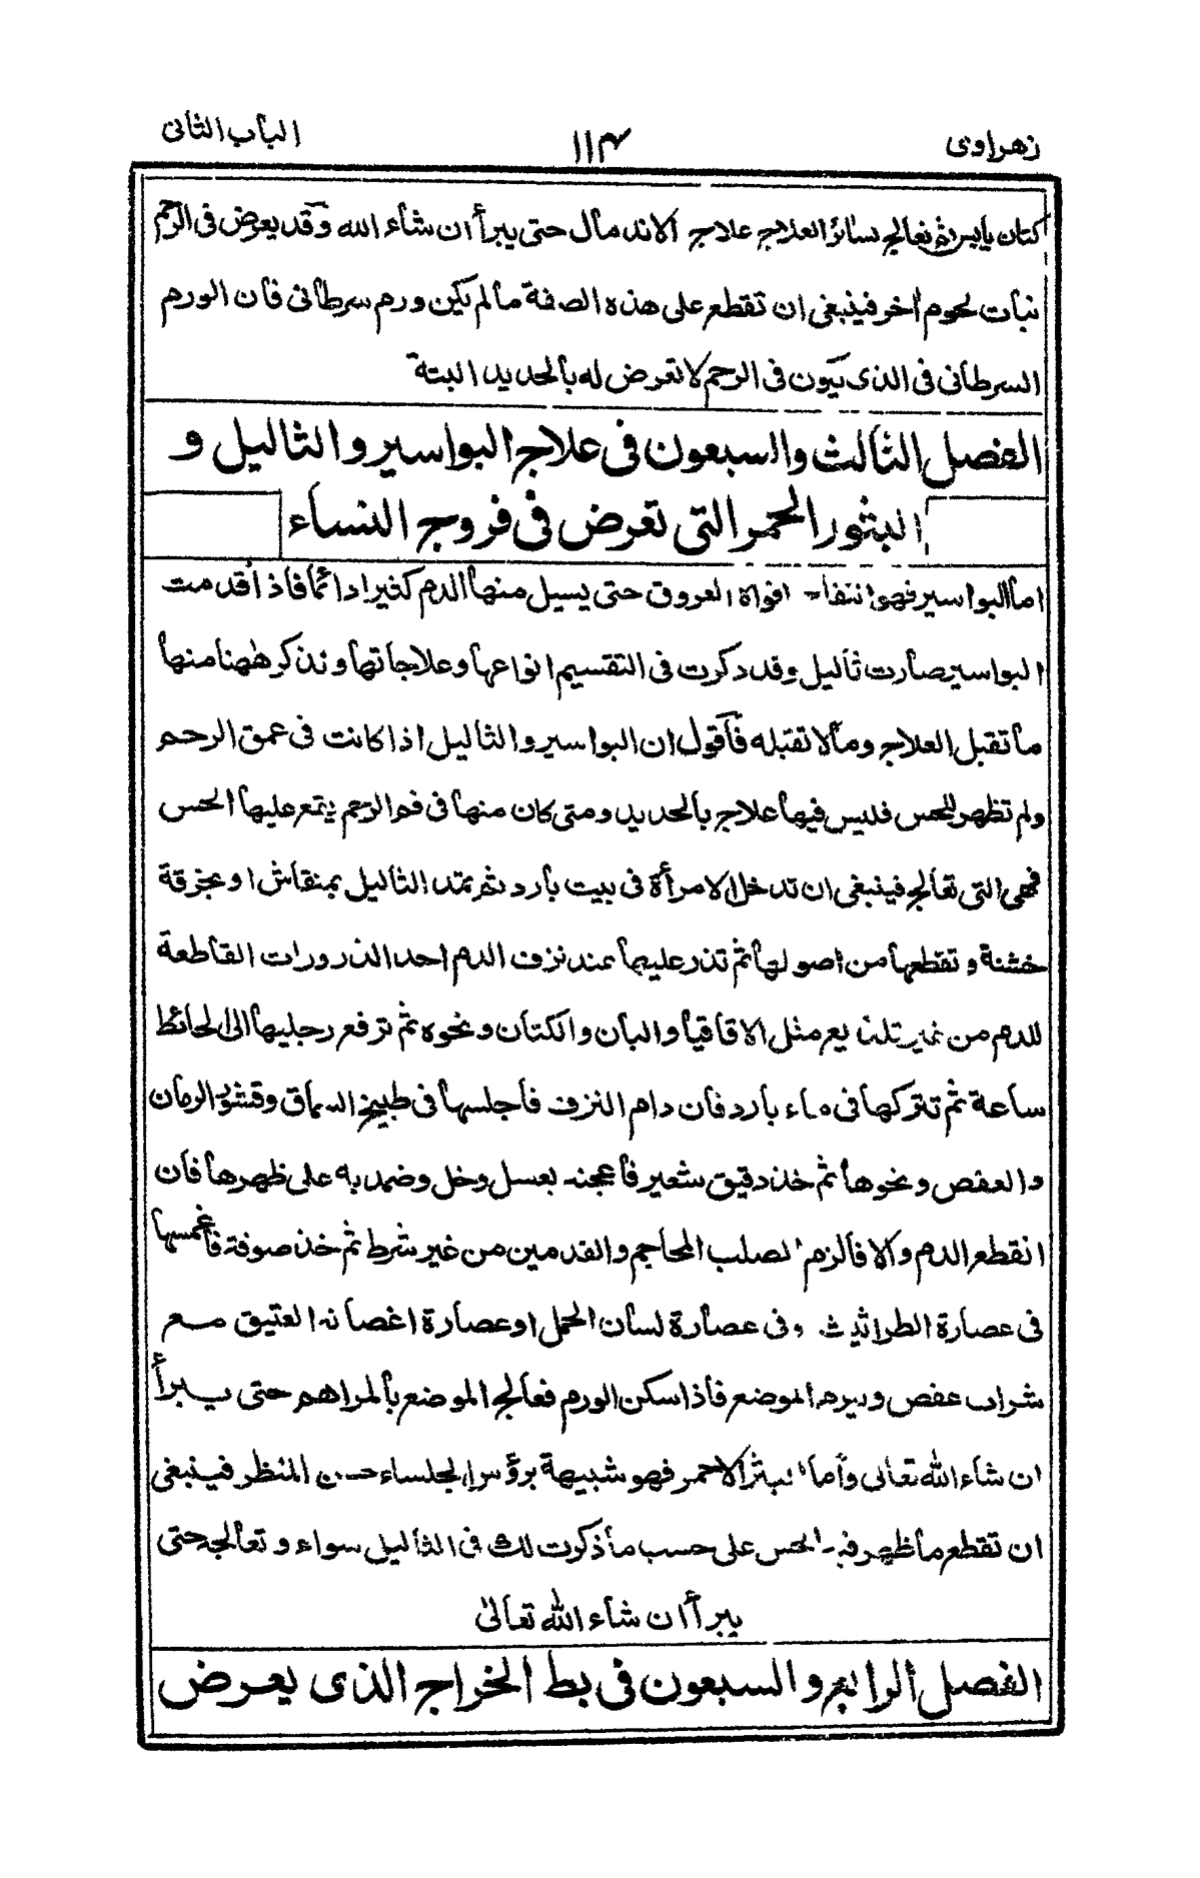 زهراوى ١١٤ الباب الثانى
كتان يابس ثم تعالج بسائر العلاج علاج الاندمال حتى يبرأ ان شاء الله وقد يعرض فى الرحم
نبات لحوم أخر فينبغى ان تقطع على هذه الصفة مالم يكن ورم سرطانى فان الورم
السرطانى فى الذى يكون فى الرحم لا تعرض له بالحديد البتة
الفصل الثالث والسبعون فى علاج البواسير والثاليل و
البثور الحمر التى تعرض فى فروج النساء
اما البواسير فهو انتفاء افواة العروق حتى يسيل منها الدم كثيرا دائما فاذا قدمت
البواسير صارت ثاليل وقد ذكرت فى التقسيم انواعها وعلاجاتها ونذكر ههنا منها
ما تقبل العلاج وما لا تقبله فأقول ان البواسير والثاليل اذا كانت فى عمق الرحم
ولم تظهر للحس فليس فيها علاج بالحديد ومتى كان منها فى فم الرحم يقع عليها الحس
فهى التى تعالج فينبغى ان تدخل الامرأة فى بيت بارد ثم تمد الثاليل بمنقاش او بخرقة
خشنة وتقطعها من اصولها ثم تذر عليها عند نزف الدم احد الذرورات القاطعة
للدم من غير تلذيع مثل الاقاقيا والبان والكتان ونحوه ثم ترفع رجليها الى الحائط
ساعة ثم تتركها فى ماء بارد فان دام النزف فأجلسها فى طبيخ السماق وقشور الرمان
والعفص ونحوها ثم خذ دقيق شعير فاعجنه بعسل وخل وضمد به على ظهرها فان
انقطع الدم والا فالزم الصلب المحاجم والقدمين من غير شرط ثم خذ صوفة فأغمسها
فى عصارة الطراثيث وفى عصارة لسان الحمل او عصارة اغصانه العتيق مع
شراب عفص ويبرم الموضع فاذا سكن الورم فعالج الموضع بالمراهم حتى يبرأ
ان شاء الله تعالى وأما البثر الاحمر فهو شبيهة برؤس الجلساء حسن المنظر فينبغى
ان تقطع ما ظهر فيه الحس على حسب ما ذكرت لك فى الثاليل سواء وتعالجه حتى
يبرأ ان شاء الله تعالى
الفصل الرابع والسبعون فى بط الخراج الذى يعرض